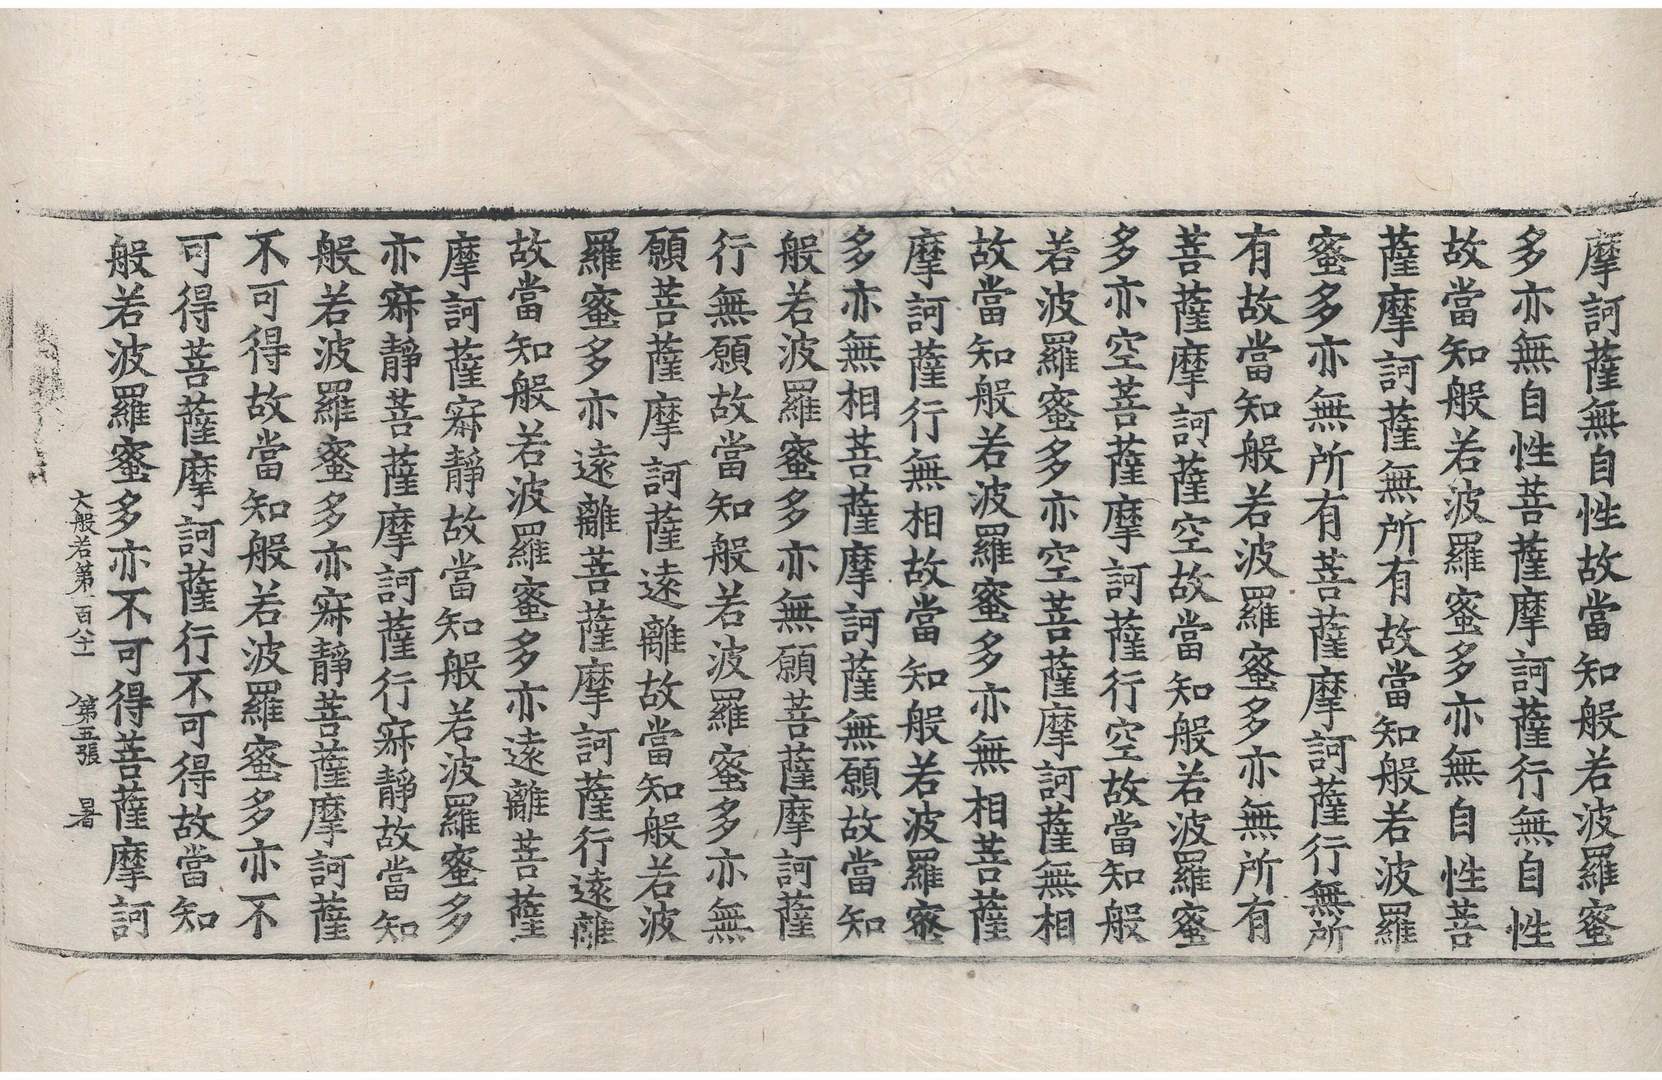 摩訶薩無自性故當知般若波羅蜜
多亦無自性菩薩摩訶薩行無自性
故當知般若波羅蜜多亦無自性菩
薩摩訶薩無所有故當知般若波羅
蜜多亦無所有菩薩摩訶薩行無所
有故當知般若波羅蜜多亦無所有
菩薩摩訶薩空故當知般若波羅蜜
多亦空菩薩摩訶薩行空故當知般
若波羅蜜多亦空菩薩摩訶薩無相
故當知般若波羅蜜多亦無相菩薩
摩訶薩行無相故當知般若波羅蜜
多亦無相菩薩摩訶薩無願故當知
般若波羅蜜多亦無願菩薩摩訶薩
行無願故當知般若波羅蜜多亦無
願菩薩摩訶薩遠離故當知般若波
羅蜜多亦遠離菩薩摩訶薩行遠離
故當知般若波羅蜜多亦遠離菩薩
摩訶薩寂靜故當知般若波羅蜜多
亦寂靜菩薩摩訶薩行寂靜故當知
般若波羅蜜多亦寂靜菩薩摩訶薩
不可得故當知般若波羅蜜多亦不
可得菩薩摩訶薩行不可得故當知
般若波羅蜜多亦不可得菩薩摩訶
大般若第一百八十一 第五張 暑